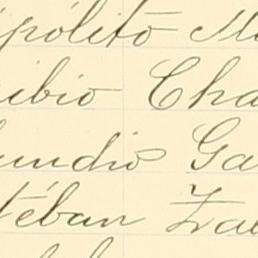 ipólito M
ibio Cha
undio Ga
téban Zal